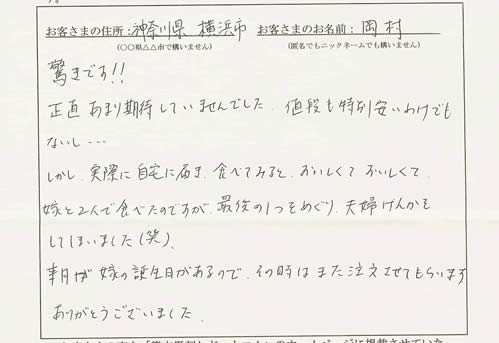 お客さまの住所：神奈川県 横浜市 お客さまのお名前：岡村
(〇〇県△△市で構いません) (匿名でもニックネームでも構いません)
驚きです!!
正直あまり期待していませんでした. 値段も特別安いわけでも
ないし…
しかし. 実際に自宅に届き. 食べてみると. おいしくて おいしくて.
嫁と2人で食べたのですが. 最後の1つをめぐり. 夫婦けんかを
してしまいました(笑).
来月が 嫁の誕生日があるので. その時は また 注文させてもらいます
ありがとうございました.